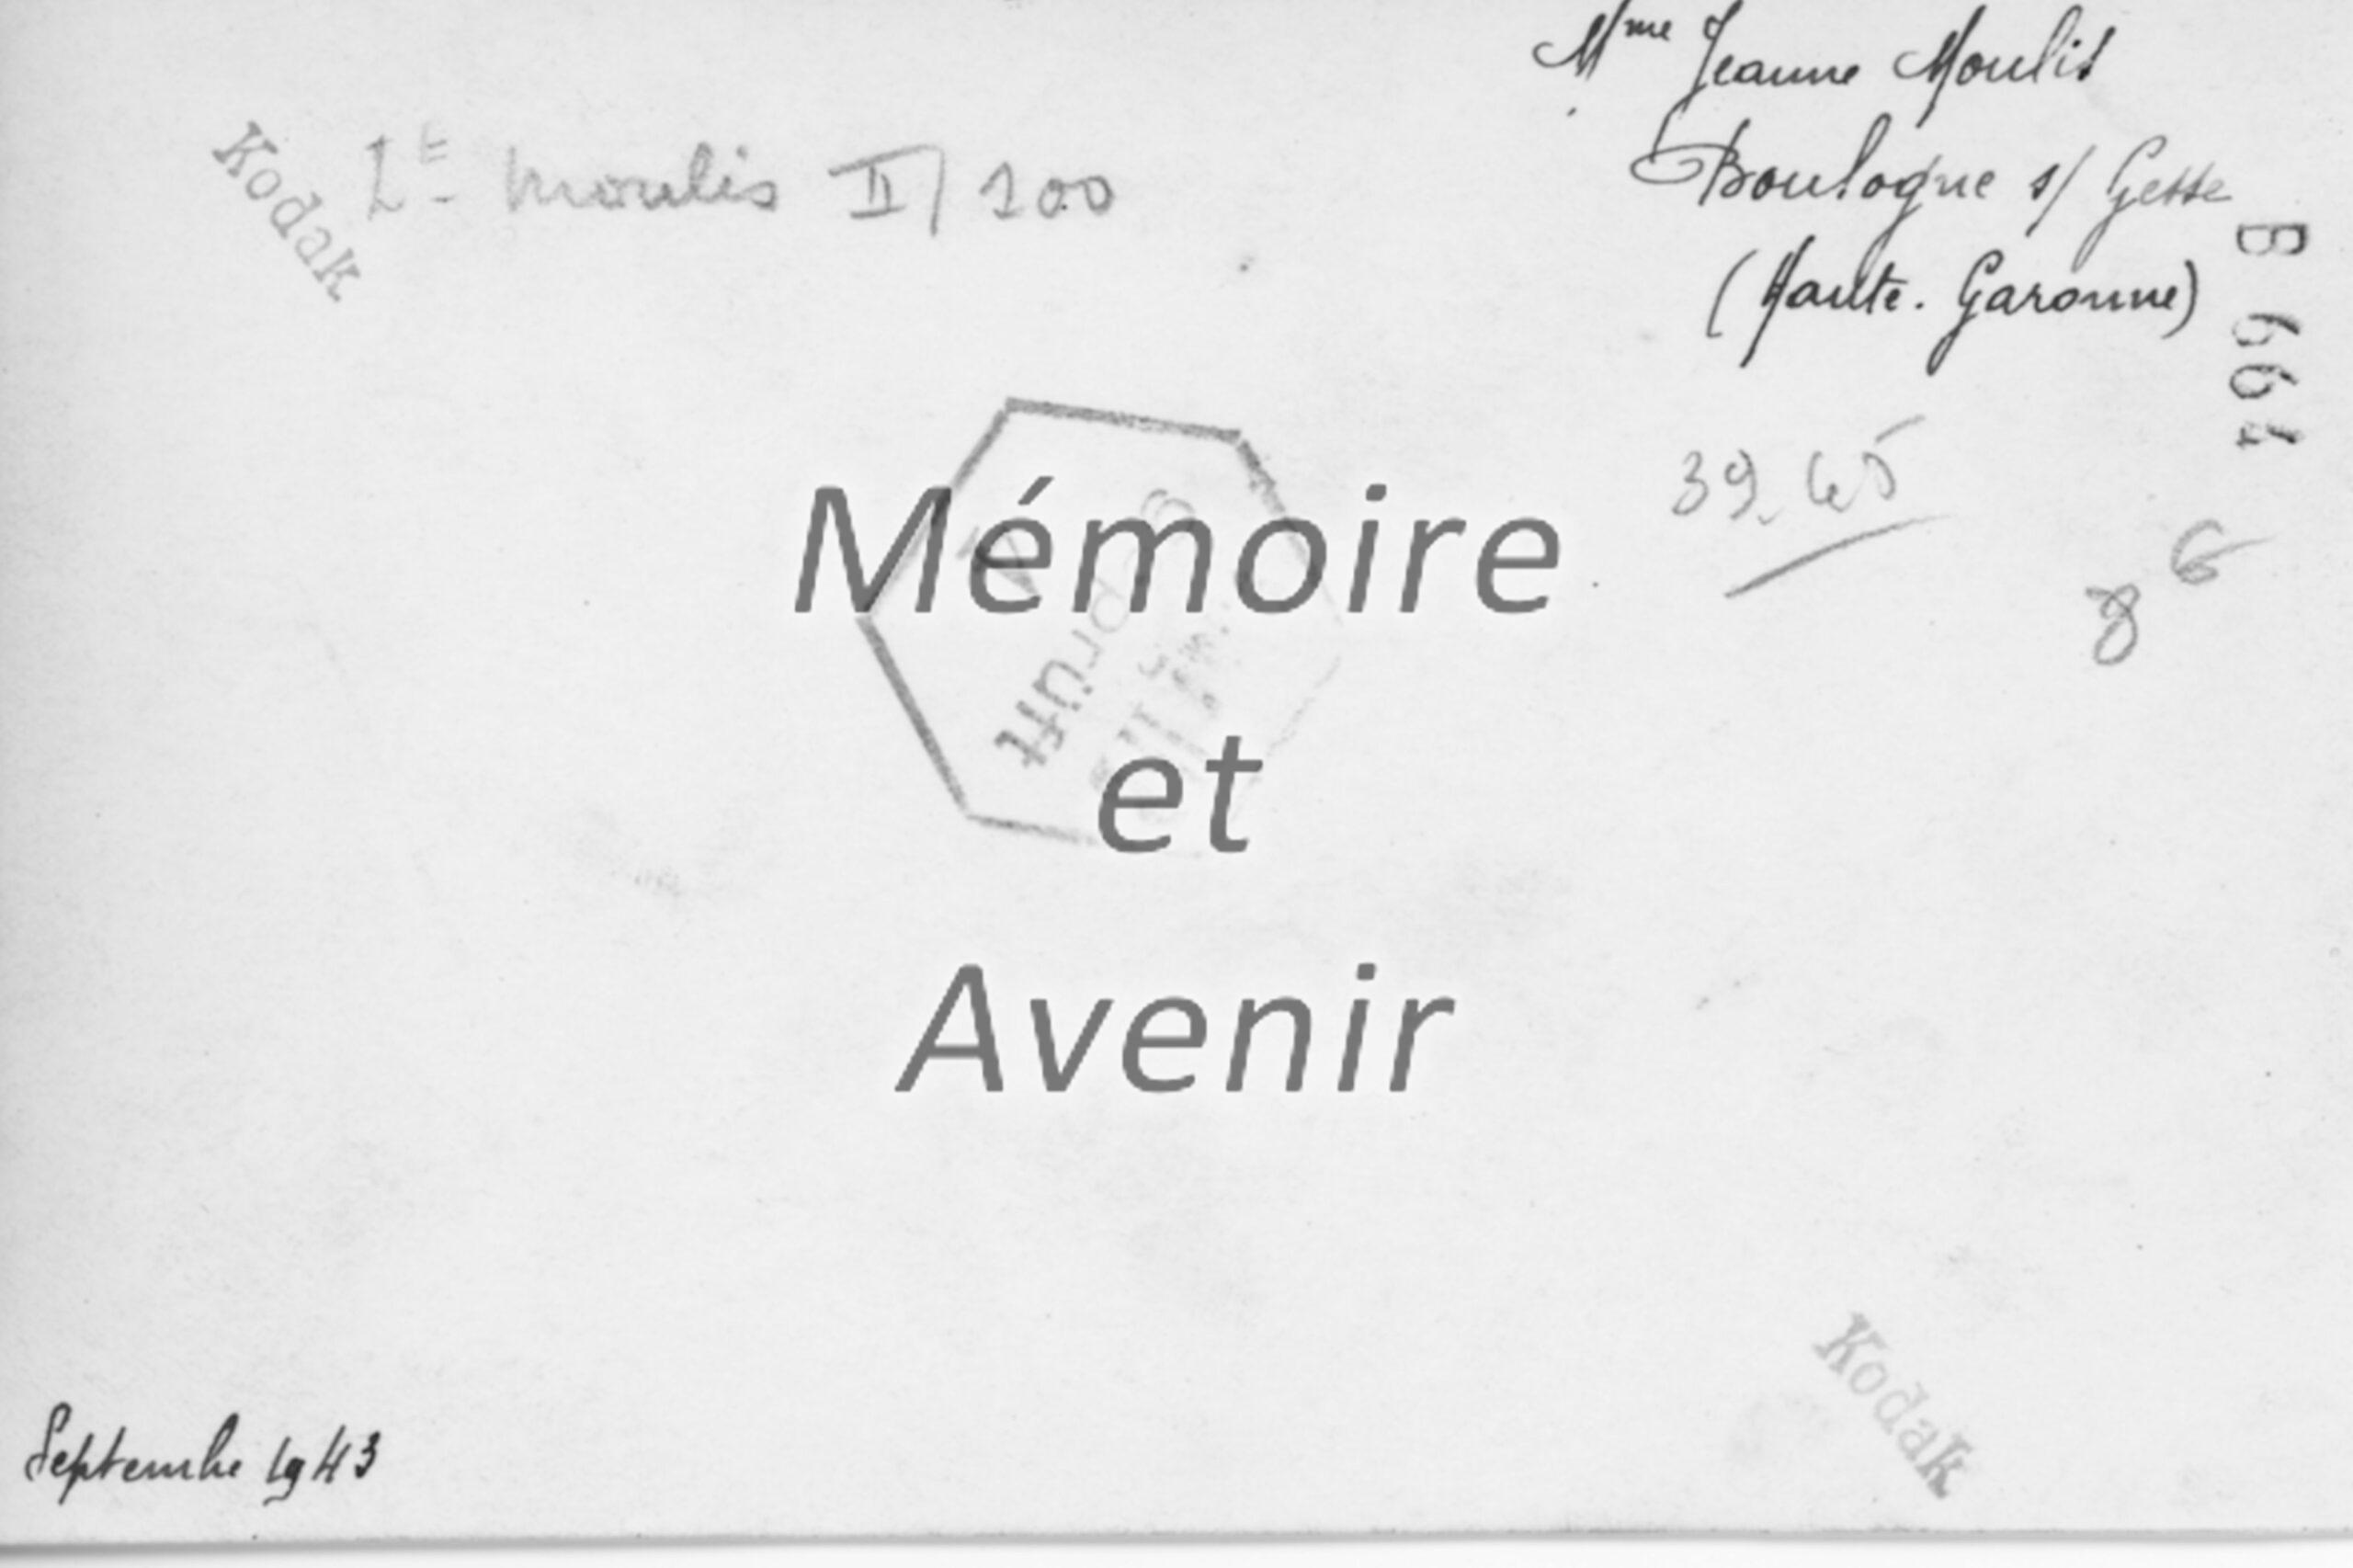 Mme Jeanne Moulis
Boulogne s/ Gesse
(Haute. Garonne)
Kodak
Lt Moulis II/100
B 664
39.45
6
8
geprüft
Mémoire
et
Avenir
Kodak
Septembre 1943